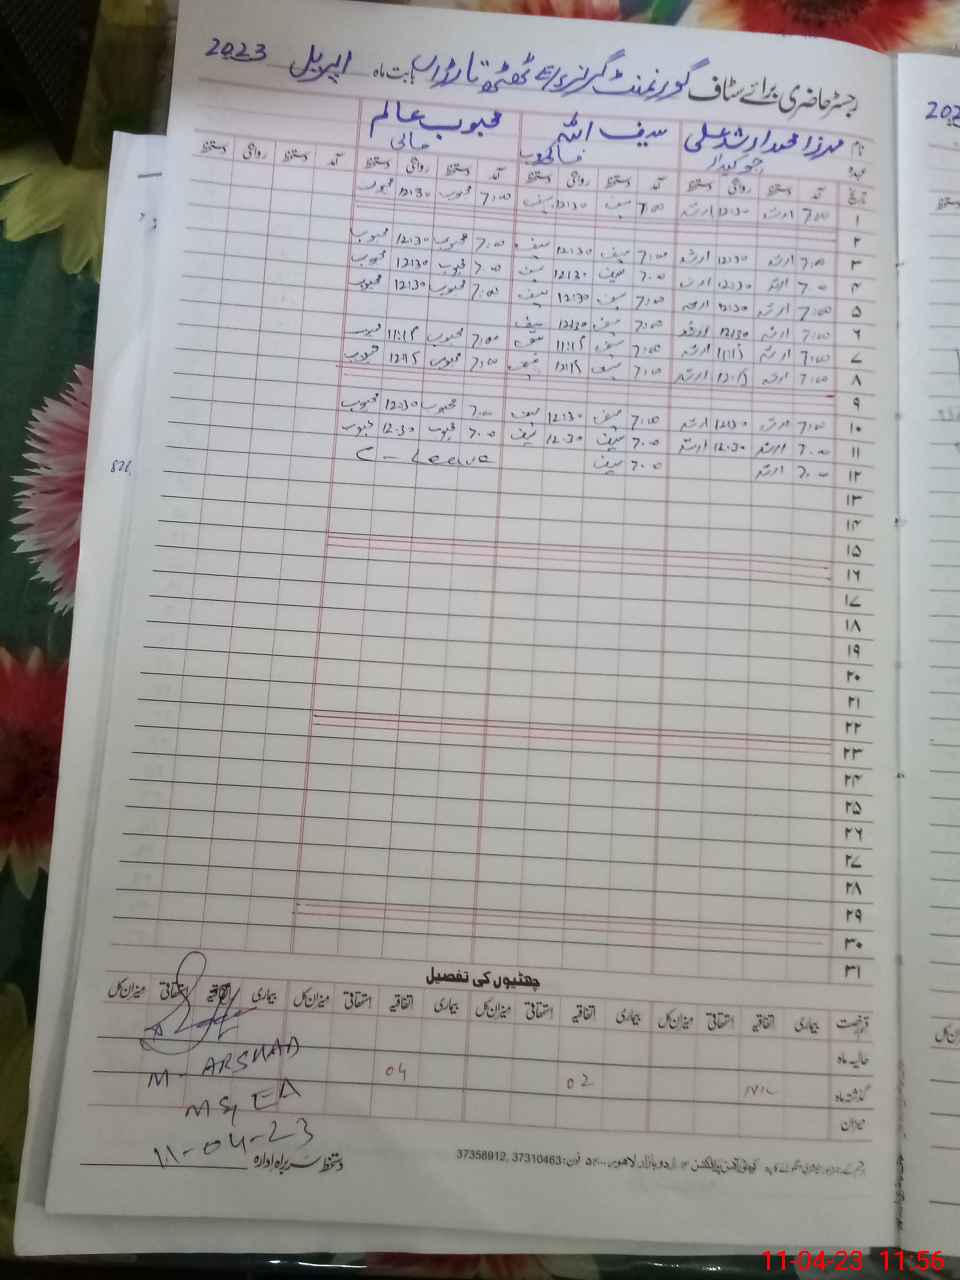 رجسٹر حاضری برائے سٹاف گورنمنٹ گرلز ٹھٹھہ تارڑاں بابت ماہ اپریل 2023
نام مرزا محمد ارشد علی سیف اللہ محبوب عالم
عہدہ چوکیدار خاکروب مالی
تاریخ آمد دستخط روانگی دستخط آمد دستخط روانگی دستخط آمد دستخط روانگی دستخط آمد دستخط روانگی دستخط
۱ 7:00 ارشد 12:30 ارشد 7:00 سیف 12:30 سیف 7:00 محبوب 12:30 محبوب
۲
۳ 7:00 ارشد 12:30 ارشد 7:00 سیف 12:30 سیف 7:00 محبوب 12:30 محبوب
۴ 7:00 ارشد 12:30 ارشد 7:00 سیف 12:30 سیف 7:00 محبوب 12:30 محبوب
۵ 7:00 ارشد 12:30 ارشد 7:00 سیف 12:30 سیف 7:00 محبوب 12:30 محبوب
۶ 7:00 ارشد 12:30 ارشد 7:00 سیف 12:30 سیف
۷ 7:00 ارشد 11:15 ارشد 7:00 سیف 11:15 سیف 7:00 محبوب 11:15 محبوب
۸ 7:00 ارشد 12:15 ارشد 7:00 سیف 12:15 سیف 7:00 محبوب 12:15 محبوب
۹
۱۰ 7:00 ارشد 12:30 ارشد 7:00 سیف 12:30 سیف 7:00 محبوب 12:30 محبوب
۱۱ 7:00 ارشد 12:30 ارشد 7:00 سیف 12:30 سیف 7:00 محبوب 12:30 محبوب
۱۲ 7:00 ارشد 7:00 سیف C-Leave
۱۳
۱۴
۱۵
۱۶
۱۷
۱۸
۱۹
۲۰
۲۱
۲۲
۲۳
۲۴
۲۵
۲۶
۲۷
۲۸
۲۹
۳۰
۳۱
چھٹیوں کی تفصیل
قسم رخصت بیماری اتفاقیہ استحقاقی میزان کل بیماری اتفاقیہ استحقاقی میزان کل بیماری اتفاقیہ استحقاقی میزان کل بیماری اتفاقیہ استحقاقی میزان کل
حالیہ ماہ
گذشتہ ماہ NIL 02 04
میزان
M-ARSHAD
MS, EA
11-04-23
دستخط سربراہ ادارہ
اردو بازار لاہور فون: 37310463, 37358912
11-04-23 11:56